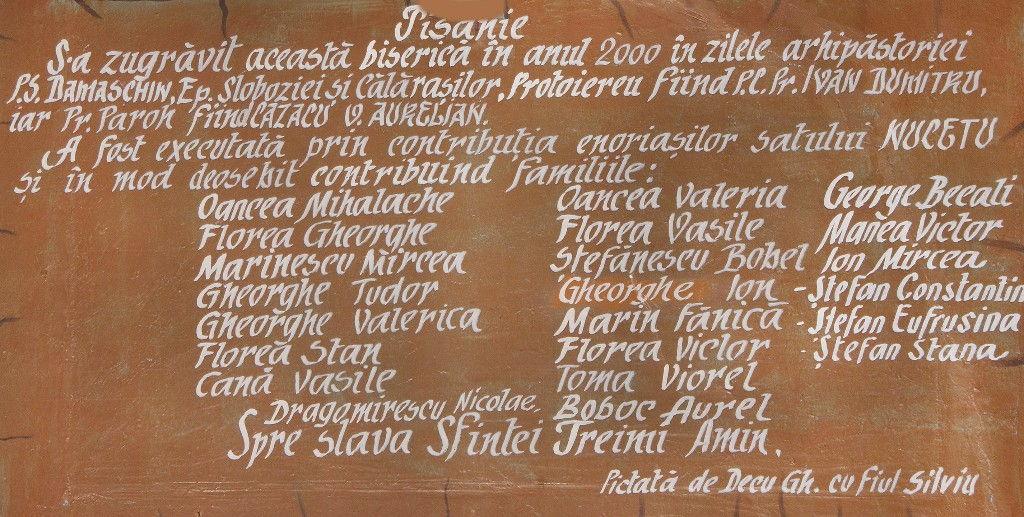 Pisanie
S-a zugrăvit această biserică în anul 2000 în zilele arhipăstoriei
P.S. DAMASCHIN, Ep. Sloboziei și Călărașilor, Protoiereu fiind P.C. Pr. IVAN DUMITRU,
iar Pr. Paroh fiind CĂZACU V. AURELIAN.
A fost executată prin contribuția enoriașilor satului NUCETU
și în mod deosebit contribuind familiile:
Oancea Mihalache Oancea Valeria George Becali
Florea Gheorghe Florea Vasile Mañea Victor
Marinescu Mircea Ștefănescu Bobel Ion Mircea
Gheorghe Tudor Gheorghe Ion - Ștefan Constantin
Gheorghe Valerica Marin Fănică - Ștefan Eufrusina
Florea Stan Florea Victor - Ștefan Stana
Cană Vasile Toma Viorel
Dragomirescu Nicolae. Boboc Aurel
Spre slava Sfintei Treimi Amin.
Pictată de Decu Gh. cu fiul Silviu